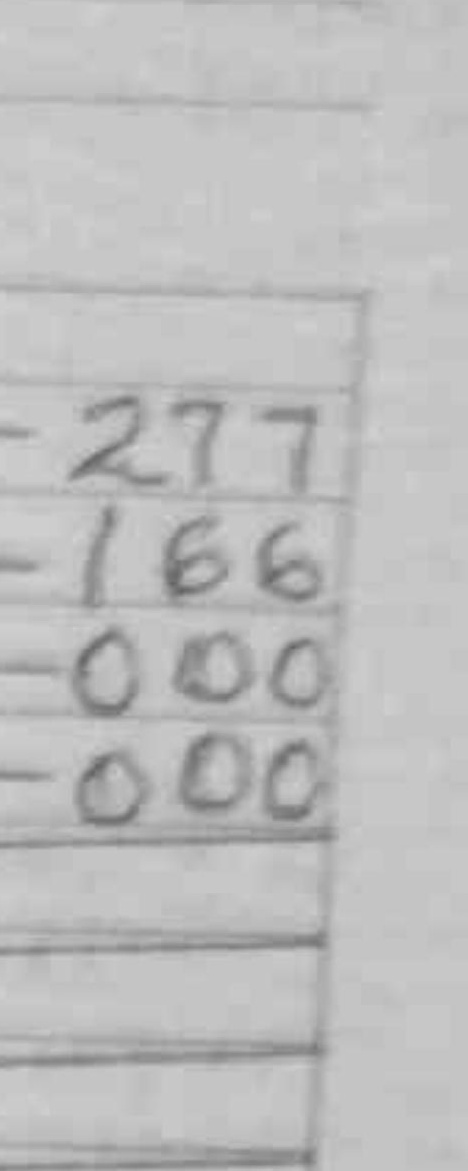 - 277
- 166
- 000
- 000